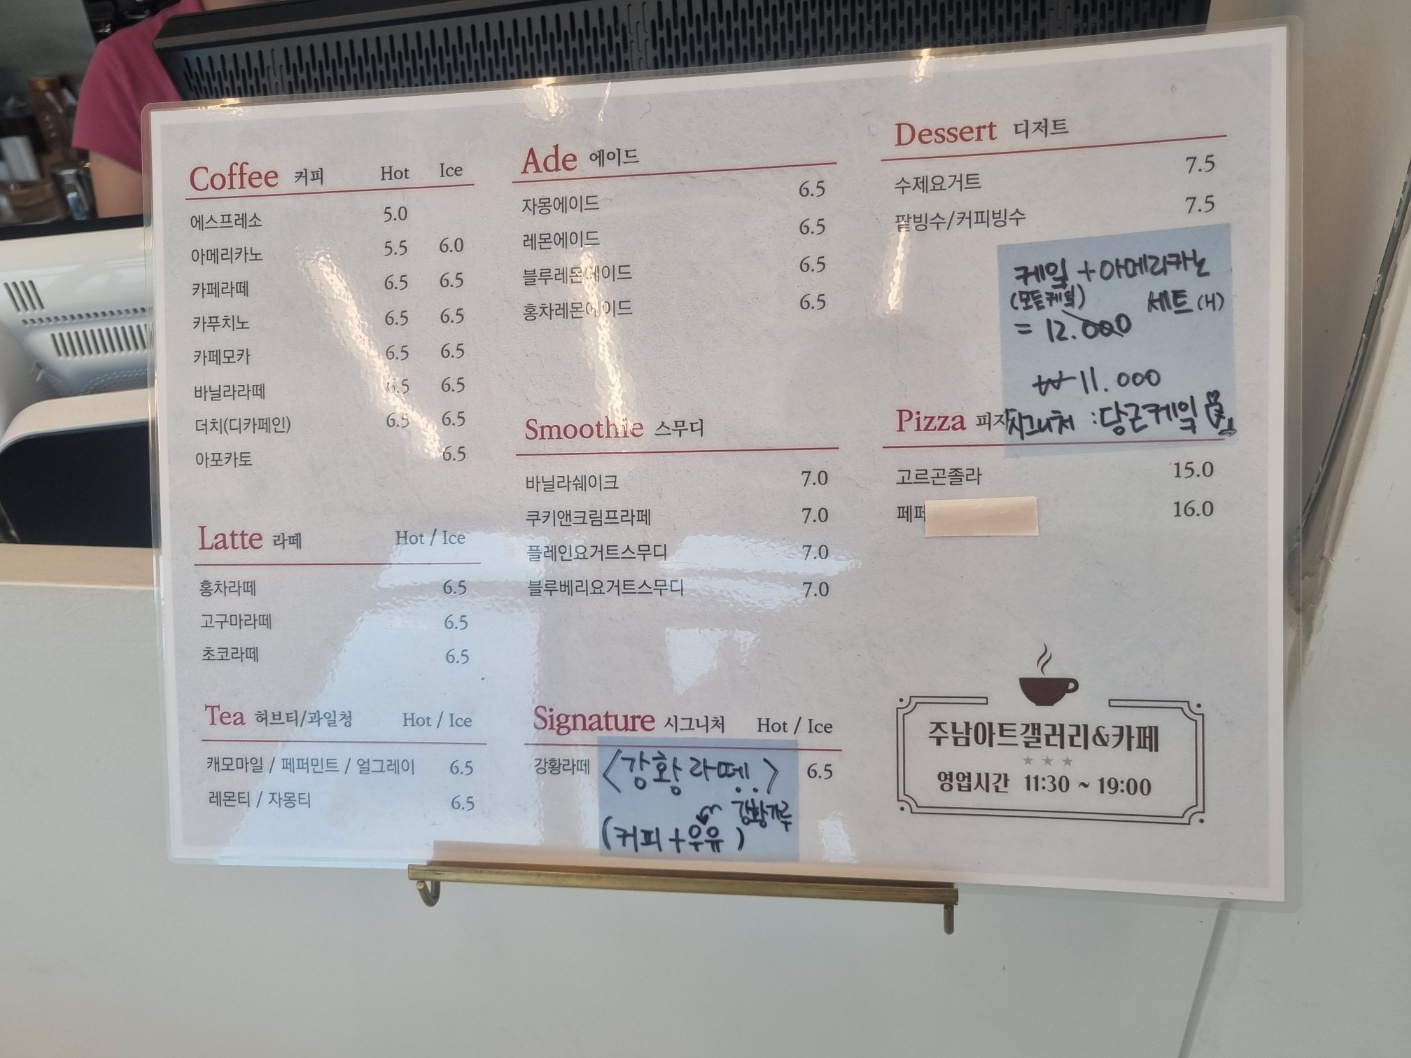 Coffee 커피 Hot Ice
에스프레소 5.0
아메리카노 5.5 6.0
카페라떼 6.5 6.5
카푸치노 6.5 6.5
카페모카 6.5 6.5
바닐라라떼 6.5 6.5
더치(디카페인) 6.5 6.5
아포카토 6.5
Latte 라떼 Hot / Ice
홍차라떼 6.5
고구마라떼 6.5
초코라떼 6.5
Tea 허브티/과일청 Hot / Ice
캐모마일 / 페퍼민트 / 얼그레이 6.5
레몬티 / 자몽티 6.5
Ade 에이드
자몽에이드 6.5
레몬에이드 6.5
블루레몬에이드 6.5
홍차레몬에이드 6.5
Smoothie 스무디
바닐라쉐이크 7.0
쿠키앤크림프라페 7.0
플레인요거트스무디 7.0
블루베리요거트스무디 7.0
Signature 시그니처 Hot / Ice
강황라떼 <강황라떼!> 6.5
강황가루
(커피+우유)
Dessert 디저트
수제요거트 7.5
팥빙수/커피빙수 7.5
케잌+아메리카노
(모든케잌) 세트(H)
= 12.000
₩11.000
시그니처 : 당근케잌
Pizza 피자
고르곤졸라 15.0
페퍼 16.0
주남아트갤러리&카페
영업시간 11:30 ~ 19:00